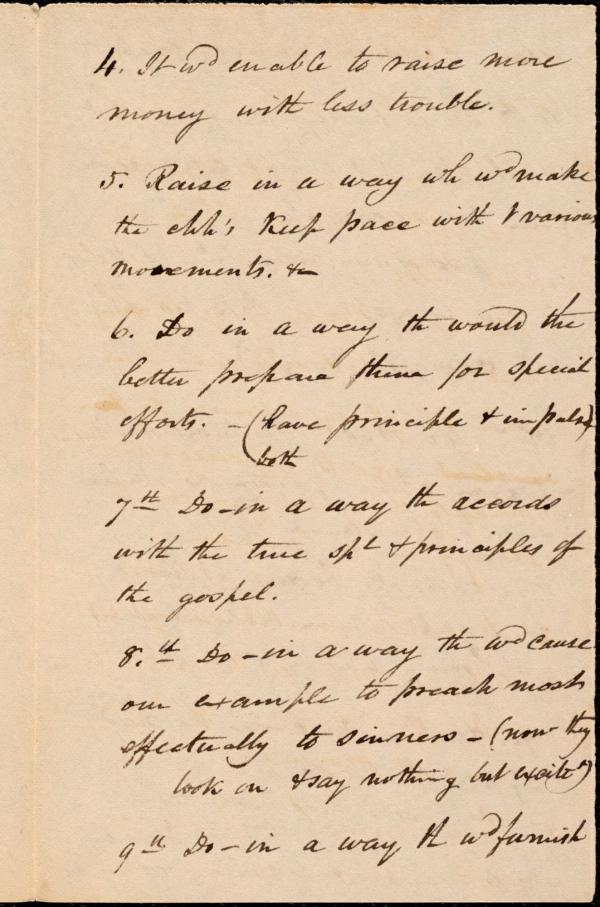 4. It wd enable to raise more
money with less trouble.
5. Raise in a way wh wd make
the chh's keep pace with t various
movements. &c
6. Do in a way th would the
better prepare them for special
efforts. - (have principle & impulse)
both
7th Do - in a way th accords
with the true spt & principles of
the gospel.
8.th Do - in a way th wd cause
our example to preach most
effectually to sinners - (now they
look on & say nothing but excitet)
9th Do - in a way th wd furnish